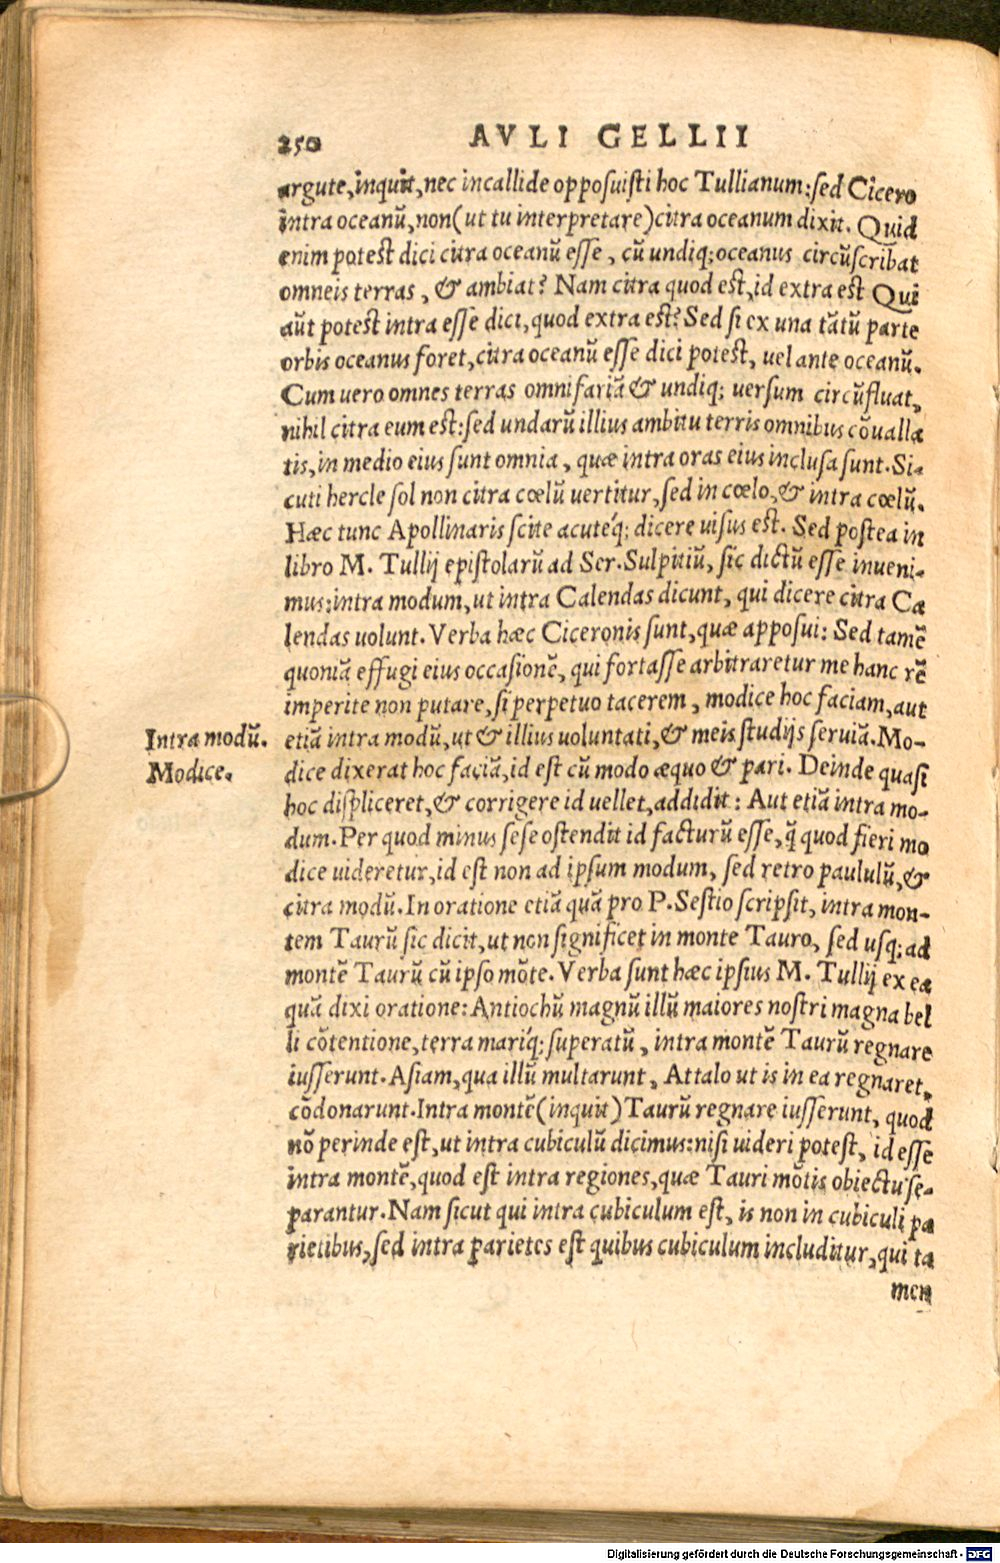 250 AVLI GELLII
argute, inquit, nec incallide opposuisti hoc Tullianum: sed Cicero
intra oceanũ, non (ut tu interpretare) citra oceanum dixit. Quid
enim potest dici citra oceanũ esse, cũ undiq; oceanus circũscribat
omneis terras, & ambiat? Nam citra quod est, id extra est Qui
aũt potest intra esse dici, quod extra est? Sed si ex una tãtũ parte
orbis oceanus foret, citra oceanũ esse dici potest, uel ante oceanũ.
Cum uero omnes terras omnifariã & undiq; uersum circũfluat,
nihil citra eum est: sed undarũ illius ambitu terris omnibus cõualla
tis, in medio eius sunt omnia, quæ intra oras eius inclusa sunt. Si-
cuti hercle sol non citra cœlũ uertitur, sed in cœlo, & intra cœlũ.
Hæc tunc Apollinaris scite acuteq́; dicere uisus est. Sed postea in
libro M. Tullij epistolarũ ad Ser. Sulpitiũ, sic dictũ esse inueni-
mus: intra modum, ut intra Calendas dicunt, qui dicere citra Ca
lendas uolunt. Verba hæc Ciceronis sunt, quæ apposui: Sed tamẽ
quoniã effugi eius occasionẽ, qui fortasse arbitraretur me hanc rẽ
imperite non putare, si perpetuo tacerem, modice hoc faciam, aut
Intra modũ. etiã intra modũ, ut & illius uoluntati, & meis studijs seruiã. Mo-
Modice. dice dixerat hoc faciã, id est cũ modo æquo & pari. Deinde quasi
hoc displiceret, & corrigere id uellet, addidit: Aut etiã intra mo-
dum. Per quod minus sese ostendit id facturũ esse, q̃ quod fieri mo
dice uideretur, id est non ad ipsum modum, sed retro paululũ, &
citra modũ. In oratione etiã quã pro P. Sestio scripsit, intra mon-
tem Taurũ sic dicit, ut non significet in monte Tauro, sed usq; ad
montẽ Taurũ cũ ipso mõte. Verba sunt hæc ipsius M. Tullij ex ea
quã dixi oratione: Antiochũ magnũ illũ maiores nostri magna bel
li cõtentione, terra mariq́; superatũ, intra montẽ Taurũ regnare
iusserunt. Asiam, qua illũ multarunt, Attalo ut is in ea regnaret,
cõdonarunt. Intra montẽ (inquit) Taurũ regnare iusserunt, quod
nõ perinde est, ut intra cubiculũ dicimus: nisi uideri potest, id esse
intra montẽ, quod est intra regiones, quæ Tauri mõtis obiectu se-
parantur. Nam sicut qui intra cubiculum est, is non in cubiculi pa
rietibus, sed intra parietes est quibus cubiculum includitur, qui ta
men
Digitalisierung gefördert durch die Deutsche Forschungsgemeinschaft - DFG